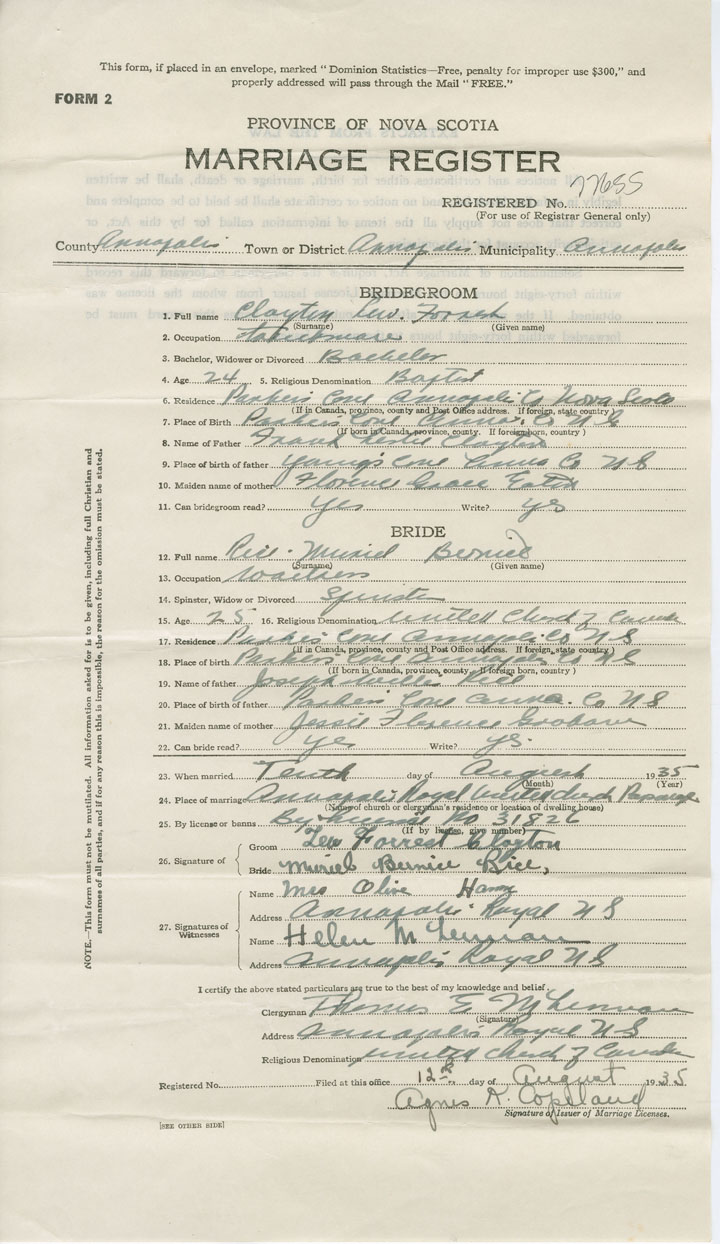 This form, if placed in an envelope, marked " Dominion Statistics—Free, penalty for improper use $300," and
properly addressed will pass through the Mail " FREE."
FORM 2
PROVINCE OF NOVA SCOTIA
MARRIAGE REGISTER
REGISTERED No. 77655
(For use of Registrar General only)
County Annapolis Town or District Annapolis Municipality Annapolis
BRIDEGROOM
1. Full name Clayton Lew. Forrest
(Surname) (Given name)
2. Occupation
3. Bachelor, Widower or Divorced Bachelor
4. Age 24 5. Religious Denomination Baptist
6. Residence Parker's Cove Annapolis Co Nova Scotia
(If in Canada, province, county and Post Office address. If foreign, state country)
7. Place of Birth Parker's Cove Anna. Co N S
(If born in Canada, province, county. If foreign born, country)
8. Name of Father Frank Leslie Clayton
9. Place of birth of father Young's Cove Anna Co N S
10. Maiden name of mother Florence Grace
11. Can bridegroom read? Yes Write? Yes
BRIDE
12. Full name Rice. Muriel Bernice
(Surname) (Given name)
13. Occupation Waitress
14. Spinster, Widow or Divorced Spinster
15. Age 25 16. Religious Denomination United Church of Canada
17. Residence Parker's Cove Annapolis Co N S
(If in Canada, province, county and Post Office address. If foreign, state country)
18. Place of birth Parker's Cove Annapolis Co N S
(If born in Canada, province, county. If foreign born, country)
19. Name of father Joseph Rice
20. Place of birth of father Parker's Cove Anna. Co N S
21. Maiden name of mother Jessie Florence
22. Can bride read? Yes Write? Yes.
23. When married Tenth day of August 1935
(Month) (Year)
24. Place of marriage Annapolis Royal United Church Parsonage
(Name of church or clergyman's residence or location of dwelling house)
25. By license or banns By License No 31826
(If by license, give number)
26. Signature of Groom Lew Forrest Clayton
Bride Muriel Bernice Rice,
27. Signatures of Witnesses
Name Mrs Olive
Address Annapolis Royal N S
Name Helen McLennan
Address Annapolis Royal N S
I certify the above stated particulars are true to the best of my knowledge and belief.
Clergyman Thomas E McLennan
(Signature)
Address Annapolis Royal N S
Religious Denomination United Church of Canada
Registered No. Filed at this office 12th day of August 1935
Agnes K. Copeland
Signature of Issuer of Marriage Licenses.
[SEE OTHER SIDE]
NOTE.—This form must not be mutilated. All information asked for is to be given, including full Christian and
surnames of all parties, and if for any reason this is impossible, the reason for the omission must be stated.